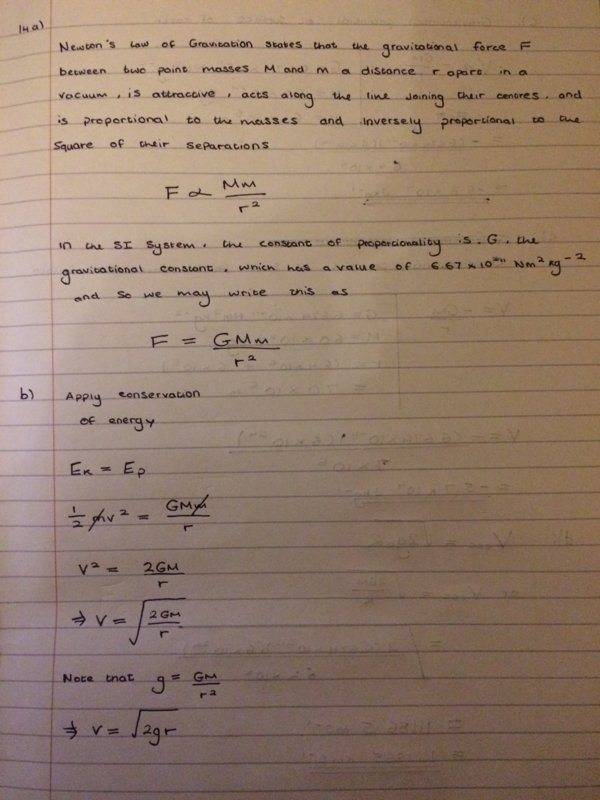 14a)
Newton's Law of Gravitation states that the gravitational force F
between two point masses M and m a distance r apart in a
vacuum, is attractive, acts along the line joining their centres, and
is proportional to the masses and inversely proportional to the
square of their separations
F ∝ Mm / r²
In the SI system, the constant of proportionality is G, the
gravitational constant, which has a value of 6.67 × 10⁻¹¹ Nm² kg⁻²
and so we may write this as
F = GMm / r²
b) Apply conservation
of energy
Eₖ = Eₚ
½ mv² = GMm / r
V² = 2GM / r
⇒ V = √(2GM / r)
Note that g = GM / r²
⇒ V = √(2gr)